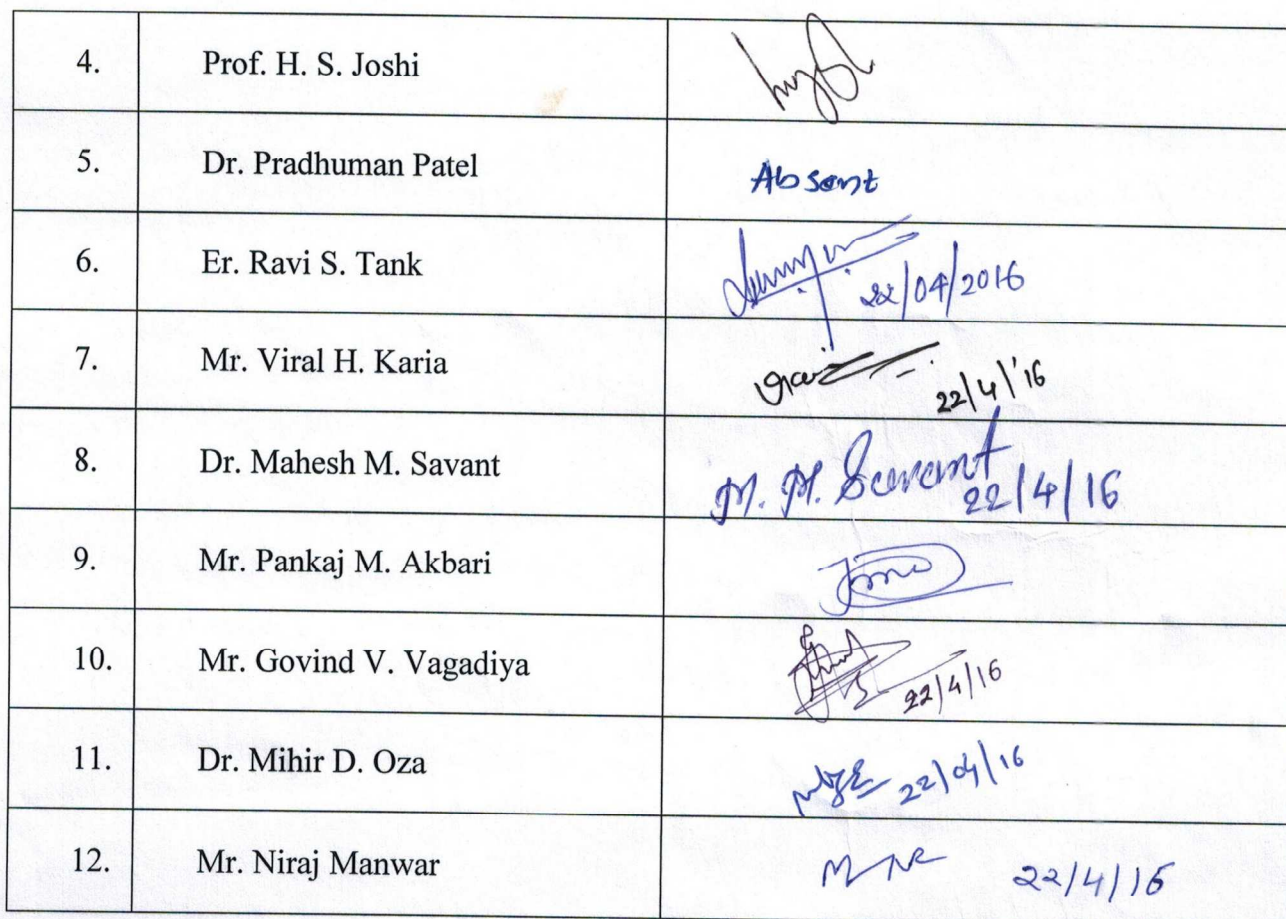 4. Prof. H. S. Joshi
5. Dr. Pradhuman Patel Absent
6. Er. Ravi S. Tank 22/04/2016
7. Mr. Viral H. Karia 22/4/'16
8. Dr. Mahesh M. Savant M. M. Savant 22/4/16
9. Mr. Pankaj M. Akbari
10. Mr. Govind V. Vagadiya 22/4/16
11. Dr. Mihir D. Oza 22/04/16
12. Mr. Niraj Manwar 22/4/16